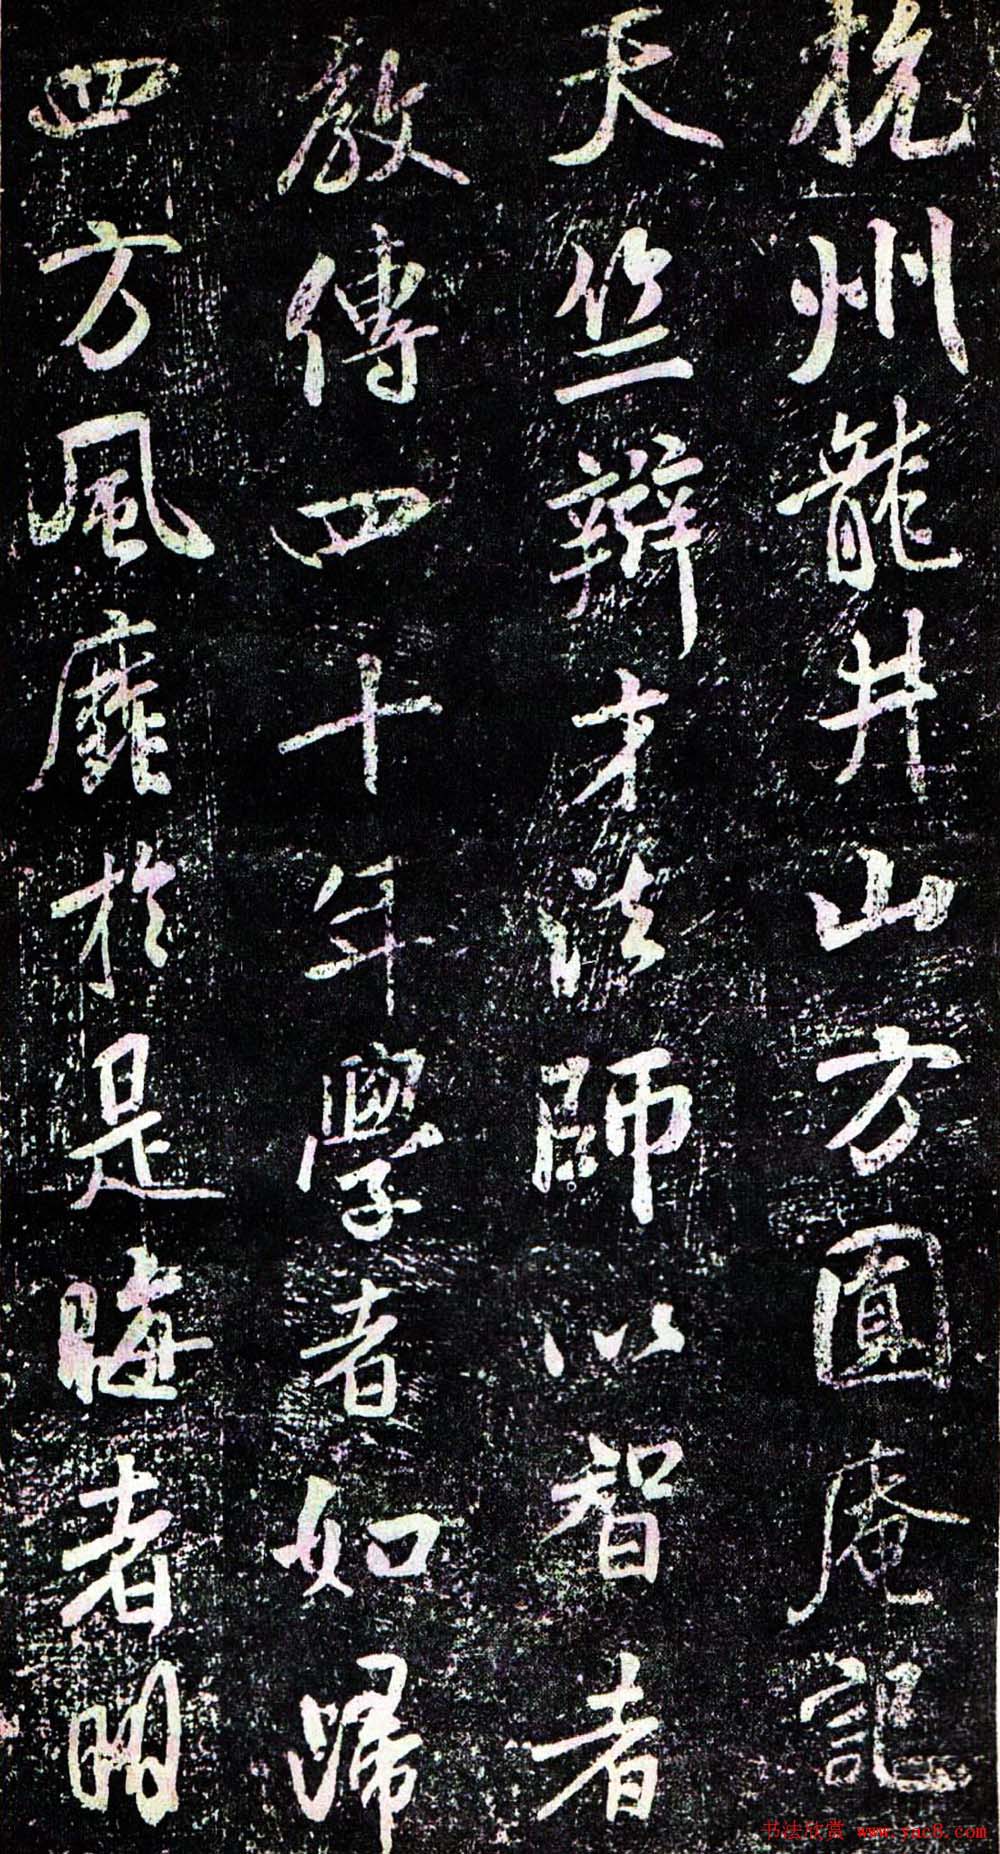 杭州龍井山方圓庵記
天竺辯才法師以智者
教傳四十年學者如歸
四方風靡於是晦者明
书法欣赏 www.yac8.com